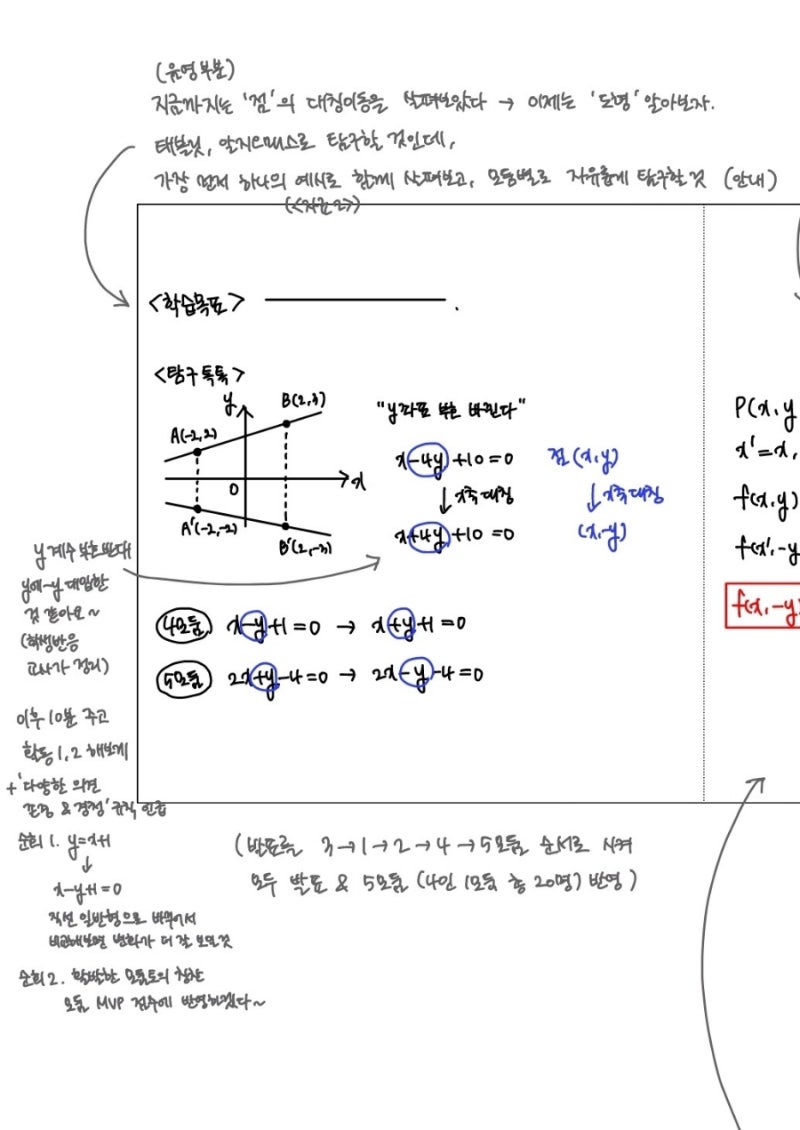 (유영부분)
지금까지는 '점'의 대칭이동을 살펴보았다 → 이제는 '도형' 알아보자.
태블릿, 알지오매스로 탐구할 것인데,
가장 먼저 하나의 예시로 함께 살펴보고, 모둠별로 자유롭게 탐구할 것 (안내)
(<자료2>)
<학습목표> .
<탐구 톡톡>
y
B(2,3)
A(-2,2)
0
x
A'(-2,-2)
B'(2,-3)
"y좌표 부호 바뀐다"
x-4y+10=0
↓ x축 대칭
x+4y+10=0
점 (x,y)
↓ x축 대칭
(x,-y)
P(x,y
x'=x,
f(x,y)
f(x',-y
f(x,-y)
y계수 부호 반대
y에 -y 대입한
것 같아요~
(학생반응
교사가 정리)
4모둠 x-y+1=0 → x+y+1=0
5모둠 2x+y-4=0 → 2x-y-4=0
이후 10분 주고
활동 1,2 해보게
+ '다양한 의견
존중 & 경청' 규칙 언급
순회 1. y=x+1
↓
x-y+1=0
직선 일반형으로 바꿔서
비교해보면 변화가 더 잘 보일 것
순회 2. 활발한 모둠토의 칭찬
모둠 MVP 점수에 반영하겠다~
(발표는 3→1→2→4→5모둠 순서로 시켜
모두 발표 & 5모둠 (4인 1모둠 총 20명) 반영)